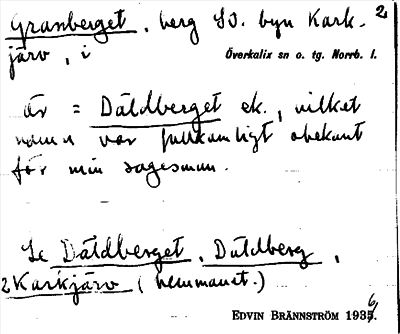 Granberget, berg SO. byn Kark- 2
järv, i Överkalix sn o. tg. Norrb. l.
är = Dåldberget ek., vilket
namn var fullkomligt obekant
för min sagesman.
Se Dåldberget, Dåldberg,
2 Karkjärv (hemmanet.)
EDVIN BRÄNNSTRÖM 1936.